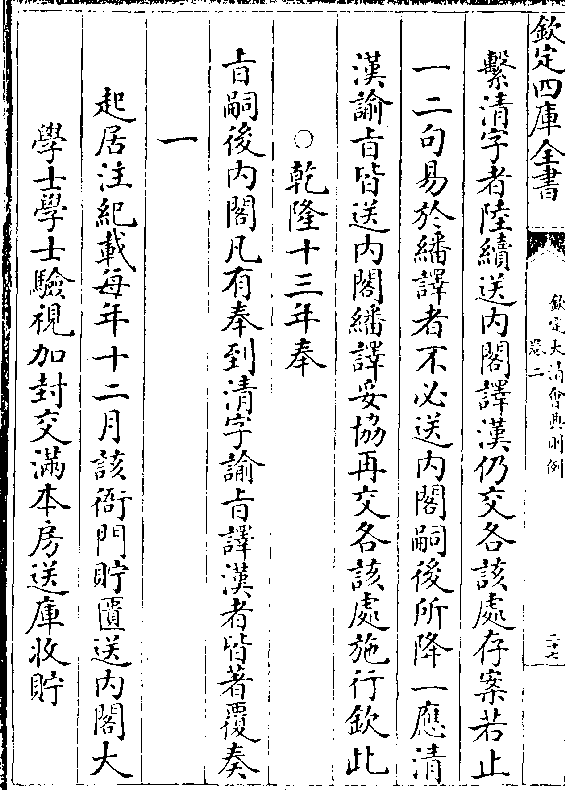 欽定四庫全書
欽定大清會典則例
卷二
二十七
繫清字者陸續送内閣譯漢仍交各該處存案若止
一二句易於繙譯者不必送内閣嗣後所降一應清
漢諭㫖皆送内閣繙譯妥協再交各該處施行欽此
○乾隆十三年奉
㫖嗣後内閣凡有奉到清字諭㫖譯漢者皆著覆奏
一
起居注紀載每年十二月該衙門貯匱送内閣大
學士學士驗視加封交滿本房送庫收貯